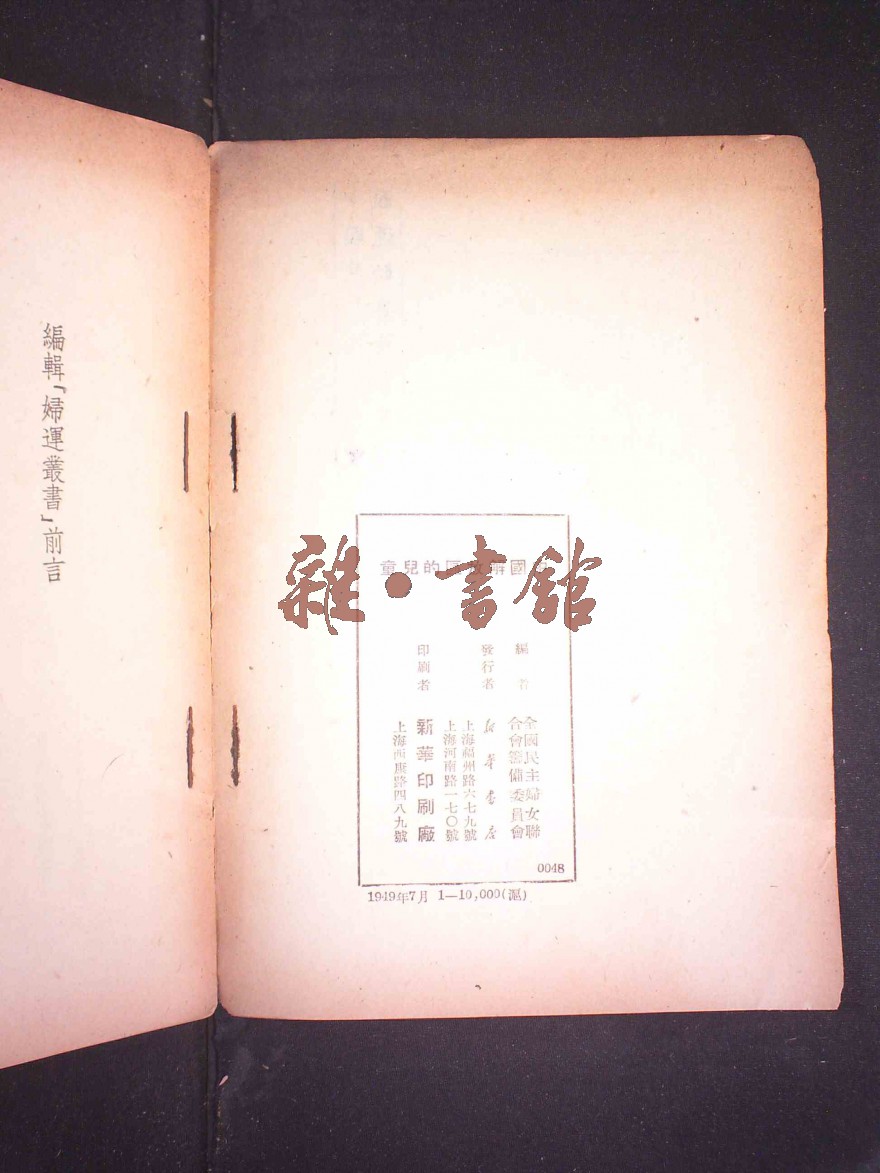 編輯「婦運叢書」前言
中國解放區的兒童
編者
全國民主婦女聯
合會籌備委員會
發行者
新華書店
上海福州路六七九號
上海河南路一七〇號
印刷者
新華印刷廠
上海西康路四八九號
0048
1949年7月 1—10,000(滬)
雜·書館